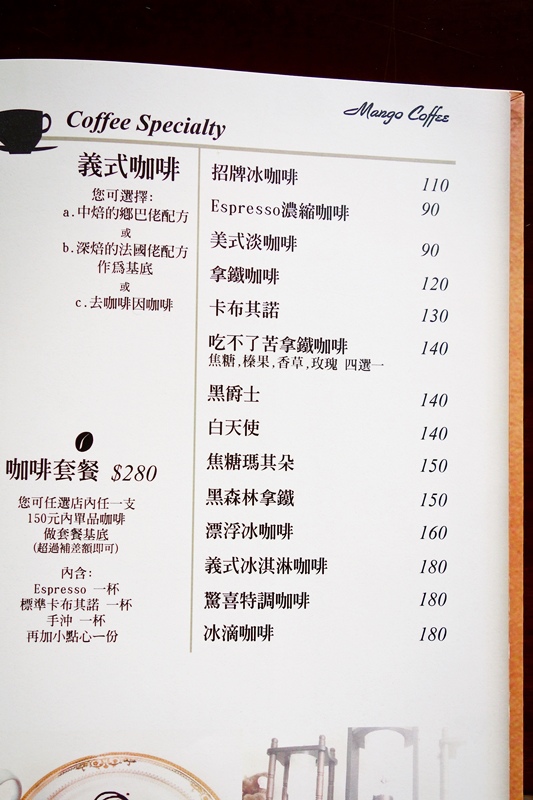 Mango Coffee
Coffee Specialty
義式咖啡
您可選擇:
a.中焙的鄉巴佬配方
或
b.深焙的法國佬配方
作爲基底
或
c.去咖啡因咖啡
咖啡套餐 $280
您可任選店內任一支
150元內單品咖啡
做套餐基底
(超過補差額即可)
內含:
Espresso 一杯
標準卡布其諾 一杯
手沖 一杯
再加小點心一份
招牌冰咖啡 110
Espresso濃縮咖啡 90
美式淡咖啡 90
拿鐵咖啡 120
卡布其諾 130
吃不了苦拿鐵咖啡 140
焦糖,榛果,香草,玫瑰 四選一
黑爵士 140
白天使 140
焦糖瑪其朵 150
黑森林拿鐵 150
漂浮冰咖啡 160
義式冰淇淋咖啡 180
驚喜特調咖啡 180
冰滴咖啡 180